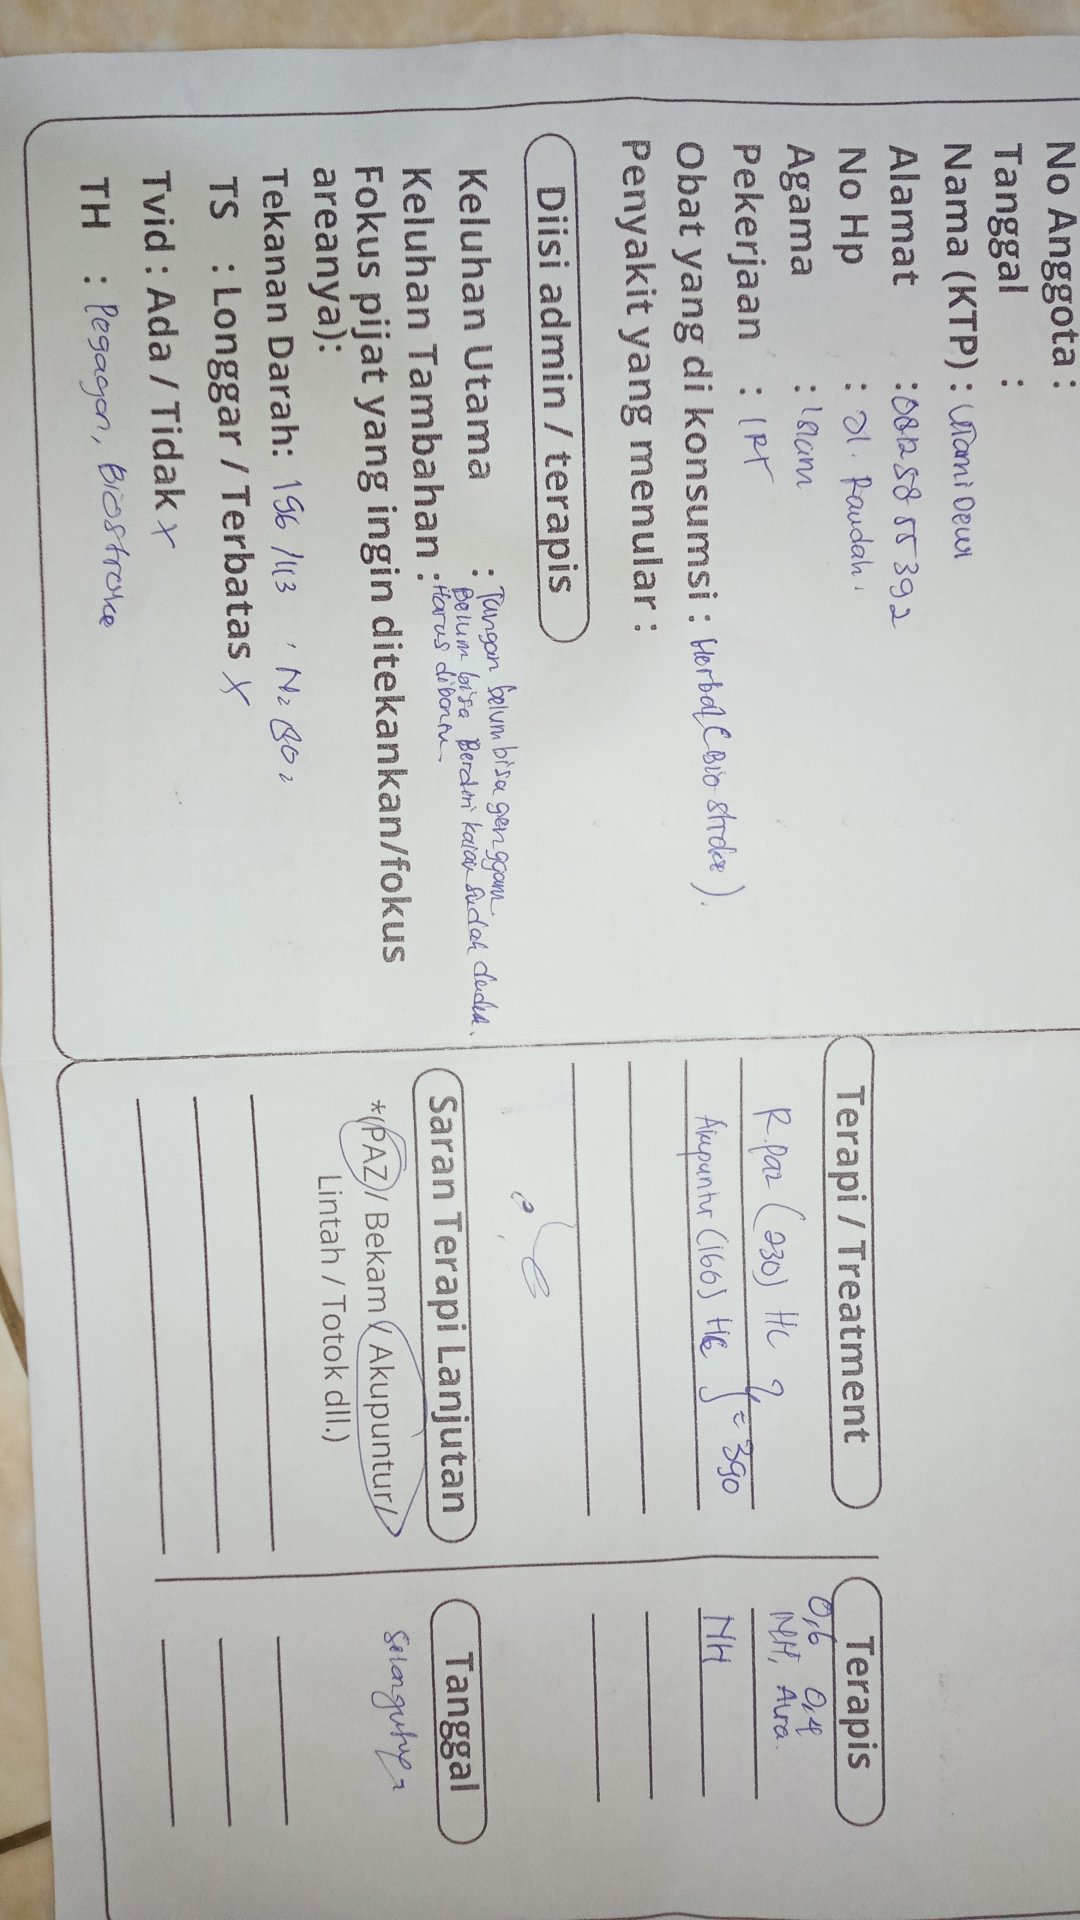 No Anggota :
Tanggal :
Nama (KTP) : Utami Dewi
Alamat : 08125855392
No Hp : Jl. Raudah.
Agama : Islam
Pekerjaan : IRT
Obat yang di konsumsi : Herbal (Bio stroke).
Penyakit yang menular :
Diisi admin / terapis
Keluhan Utama : Tangan belum bisa genggam.
Belum bisa Berdiri kalau sudah duduk.
Keluhan Tambahan : Harus dibantu.
Fokus pijat yang ingin ditekankan/fokus
areanya):
Tekanan Darah: 196/113, N: 90
TS : Longgar / Terbatas X
Tvid : Ada / Tidak X
TH : Pegagan, Biostroke
Terapi / Treatment
R. Paz (230) Hc
Akupuntur (160) Hc = 390
Saran Terapi Lanjutan
*(PAZ / Bekam / Akupuntur /
Lintah / Totok dll.)
Terapis
0,6 0,4
NH, Aura.
NH
Tanggal